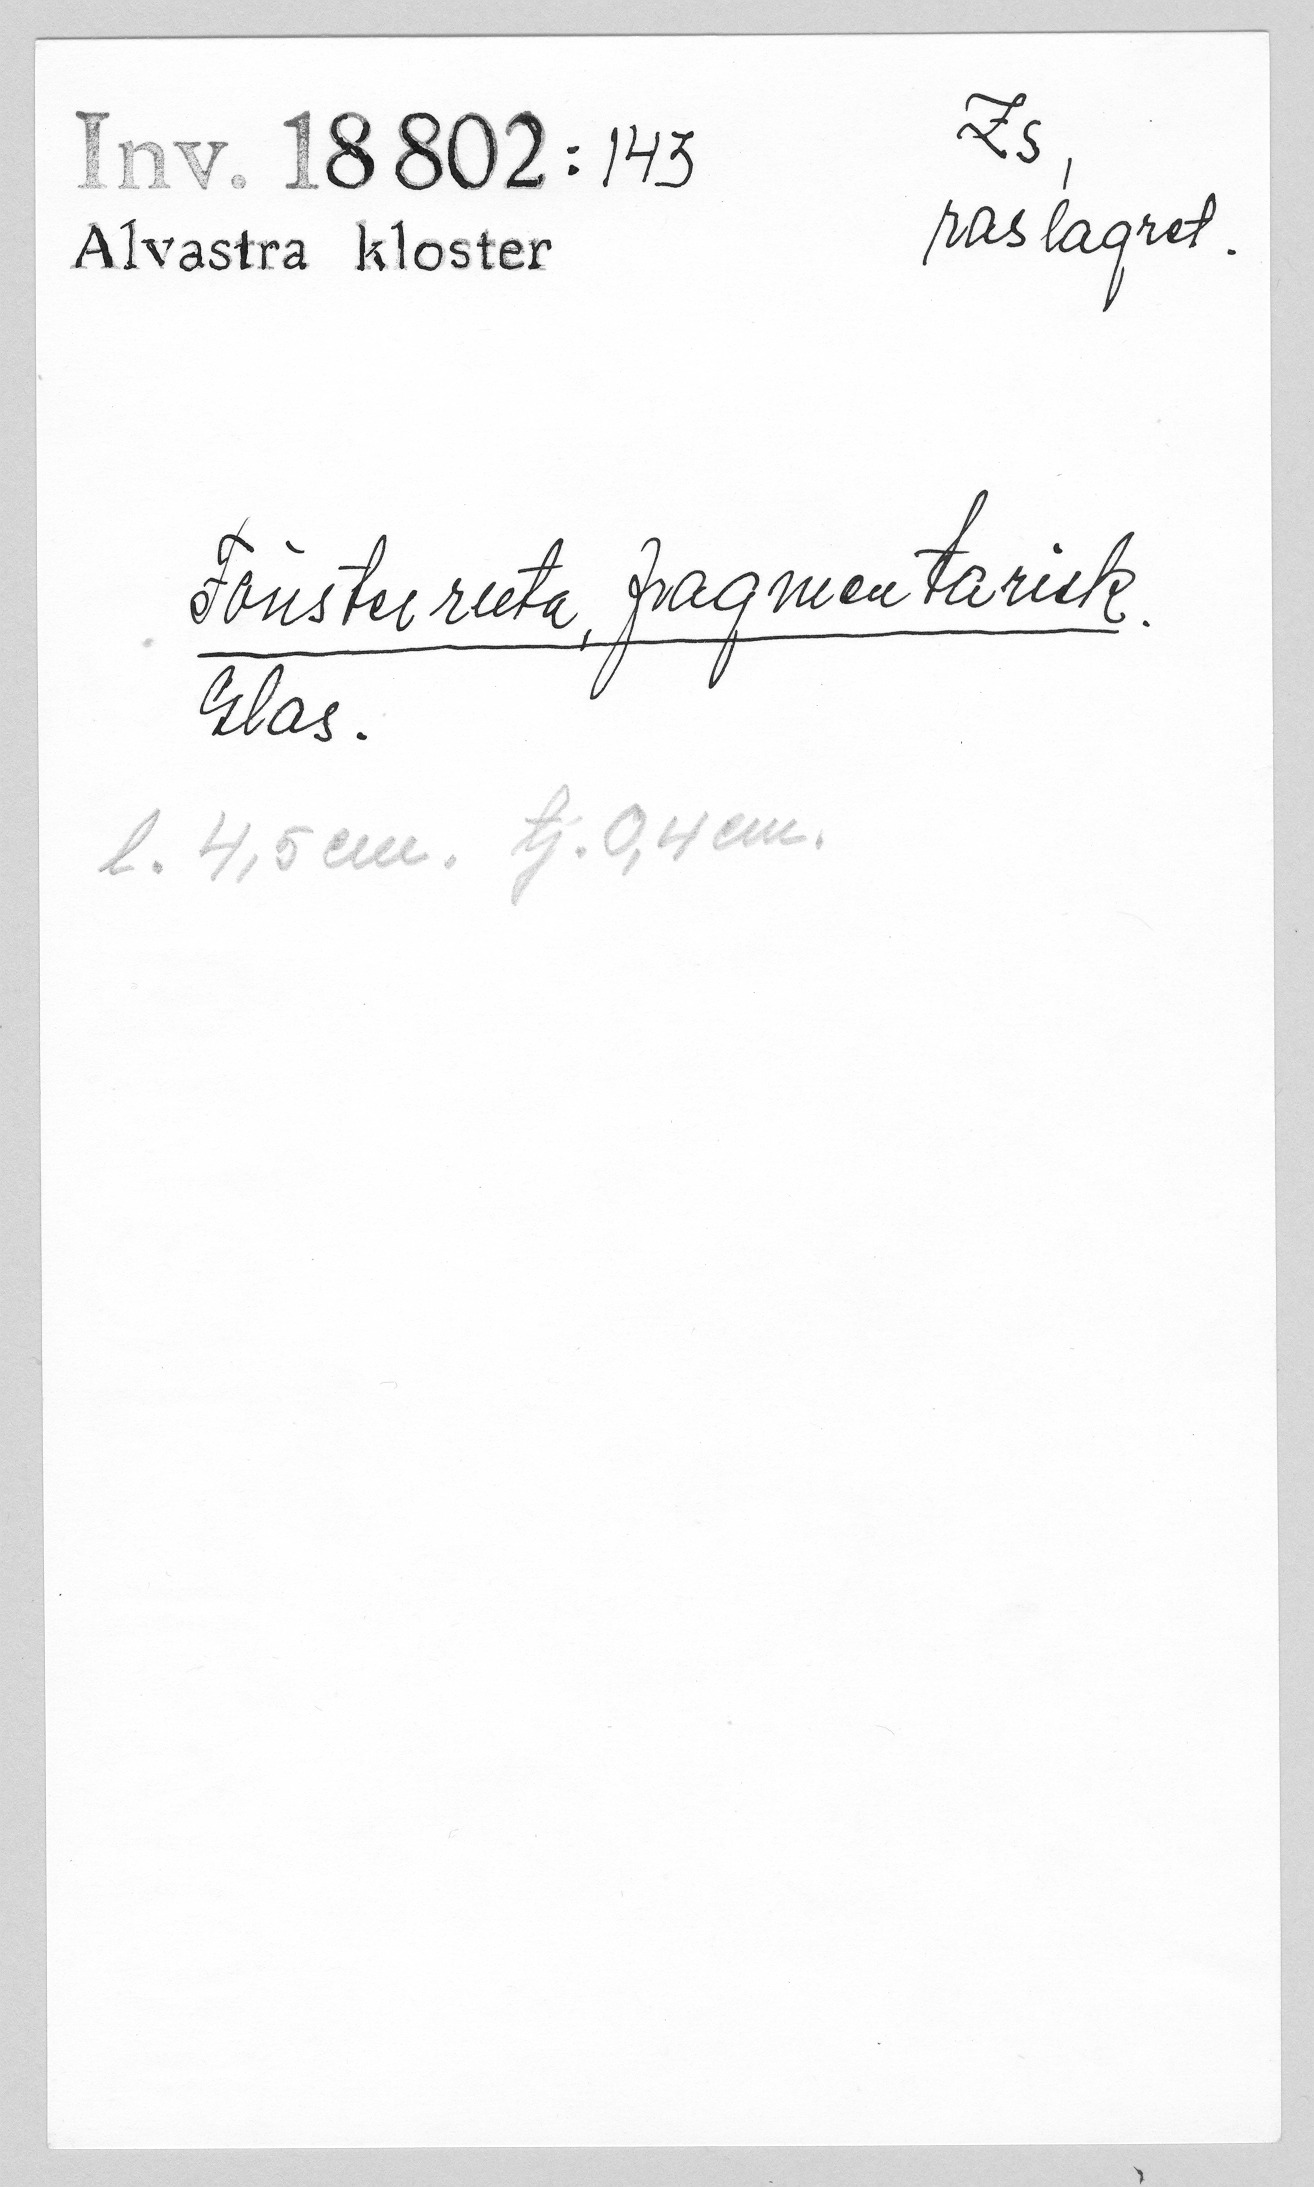 Inv. 18 802:143
Zs,
raslagret.
Alvastra kloster
Fönsterruta, fragmentarisk.
Glas.
l. 4,5 cm. tj. 0,4 cm.